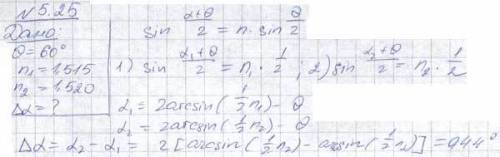 № 5.25
Дано:
θ = 60°
n₁ = 1,515
n₂ = 1,520
Δα = ?
sin (α+θ)/2 = n · sin θ/2
1) sin (α₁+θ)/2 = n₁ · 1/2 ; 2) sin (α₂+θ)/2 = n₂ · 1/2
α₁ = 2arcsin(1/2 n₁) - θ
α₂ = 2arcsin(1/2 n₂) - θ
Δα = α₂ - α₁ = 2[arcsin(1/2 n₂) - arcsin(1/2 n₁)] = 0,44°